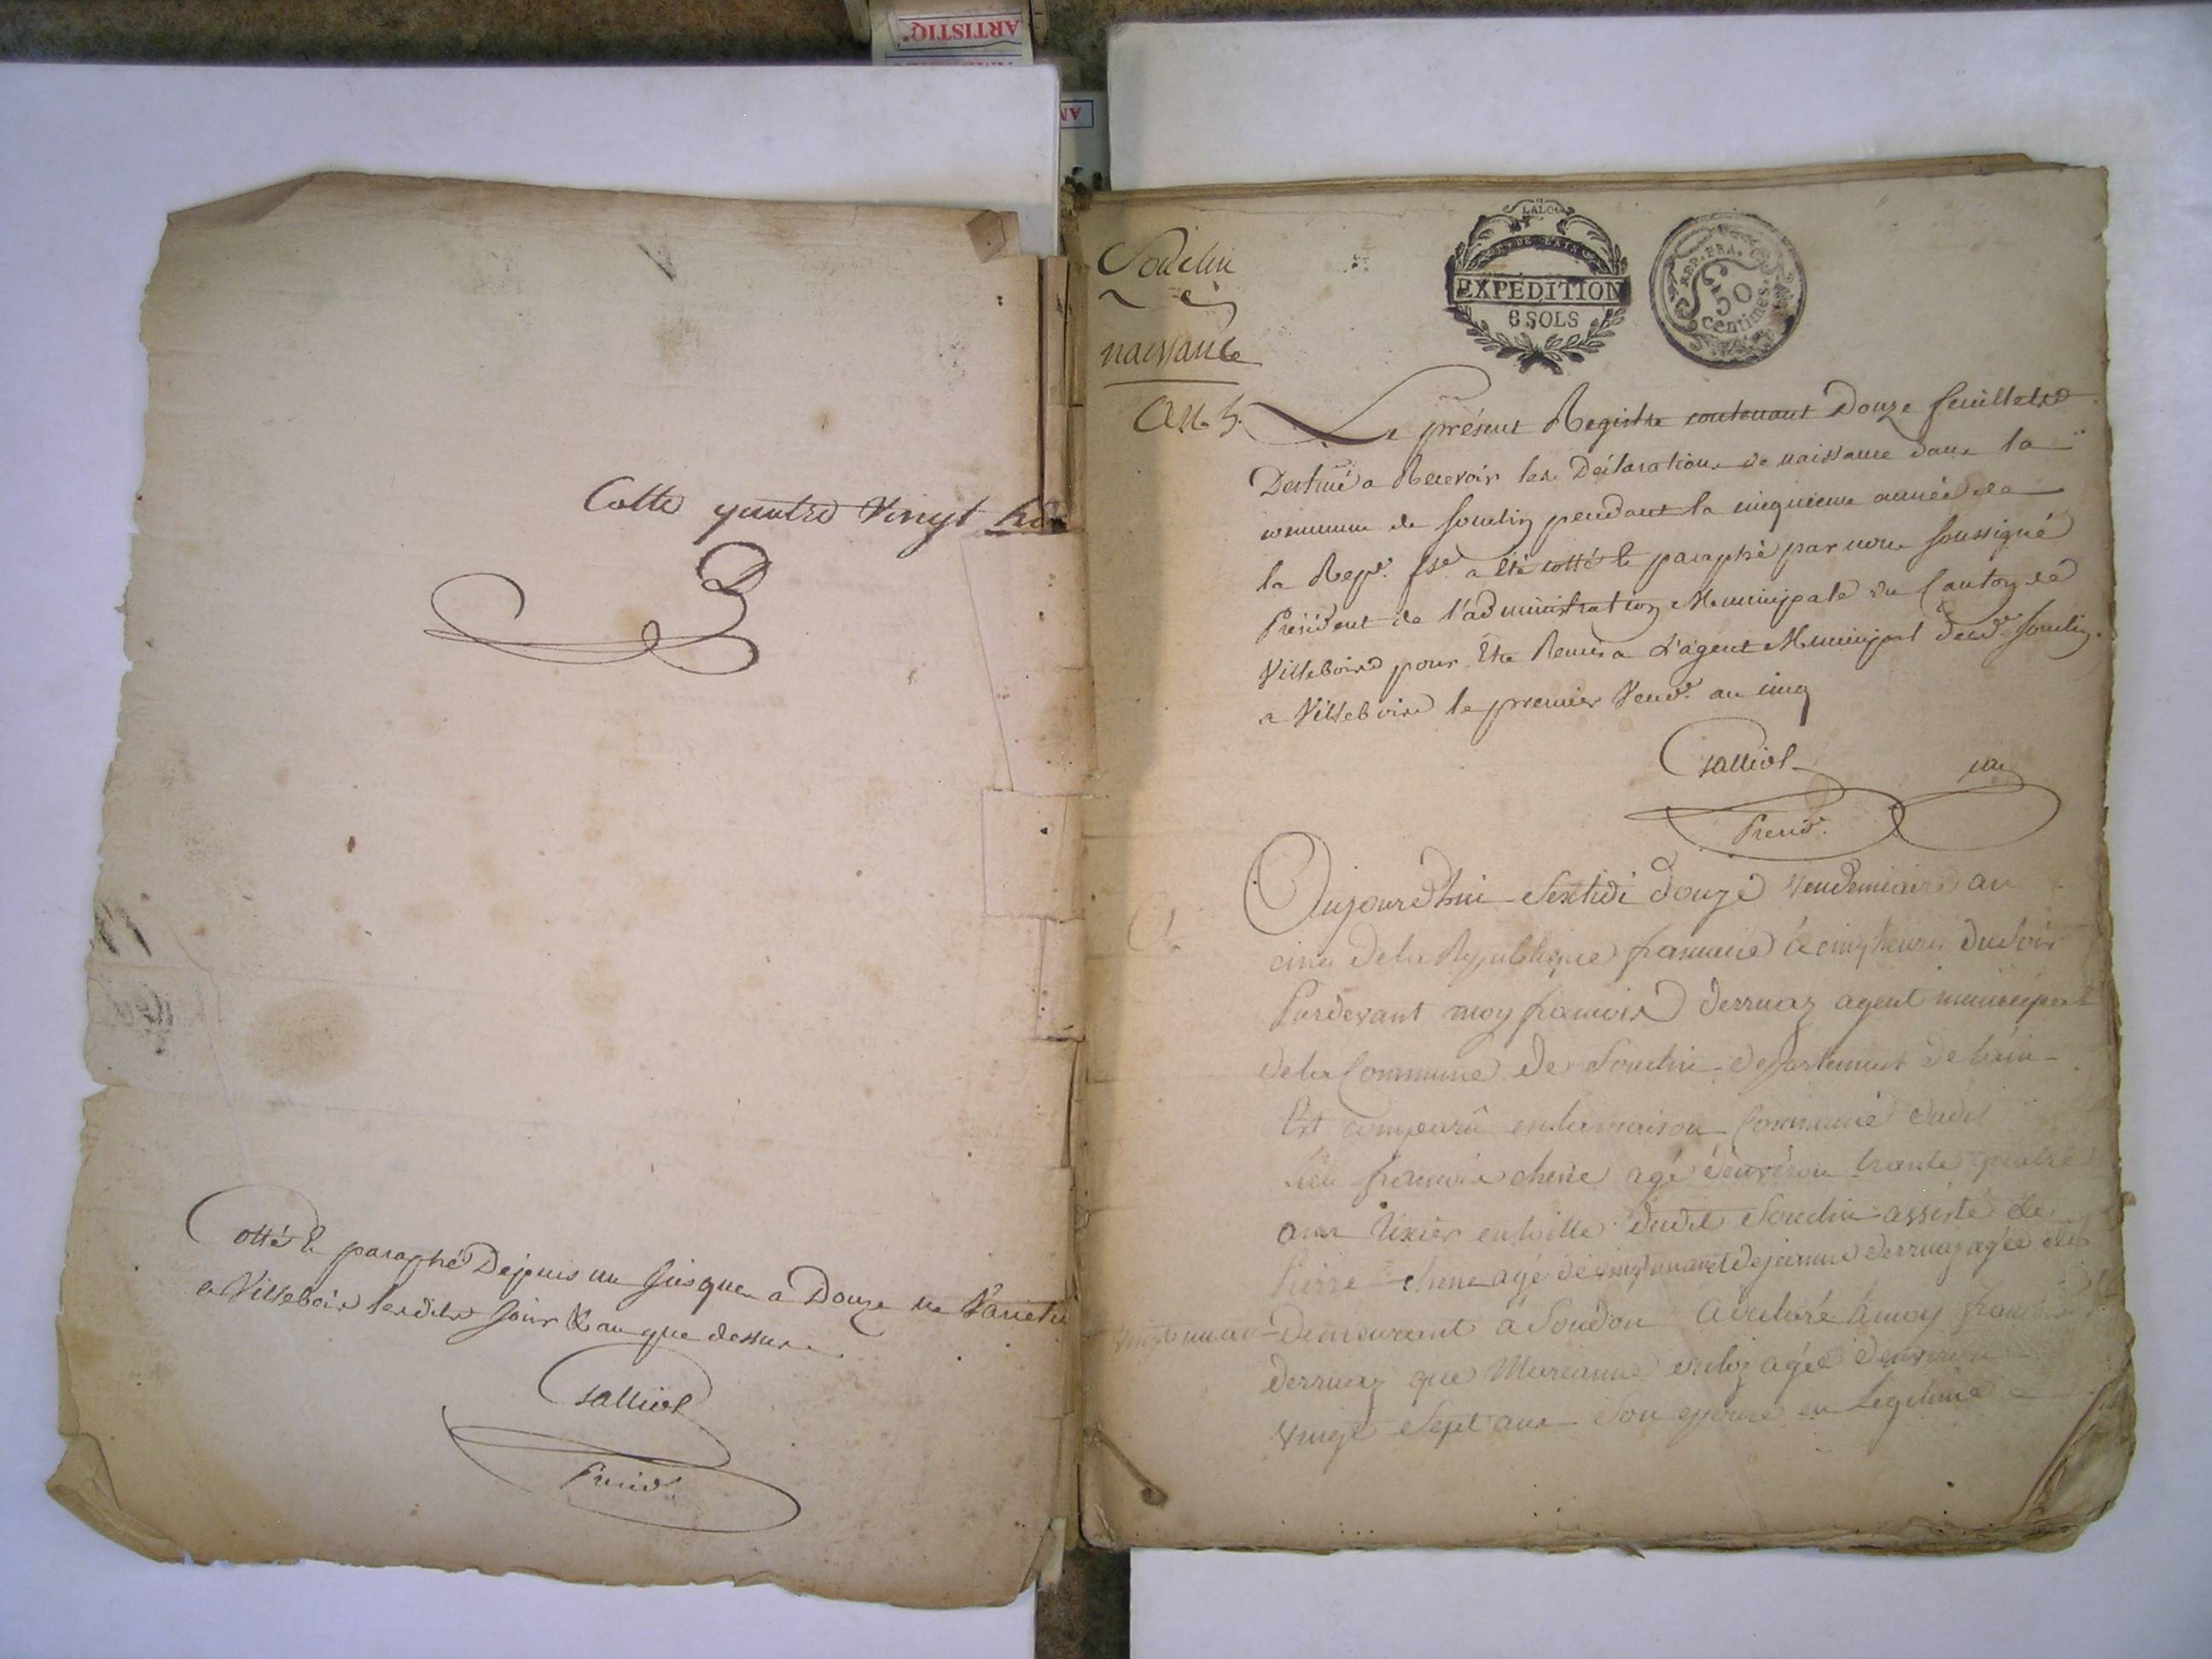 Cotte quatre Vingt
Cotté & paraphé Depuis un Jusques a Douze ne Varietur
a Villebois lesdits jour & an que dessus
Salliol
Presid.t
Souclin
naissance
An. 5.
LALO
EXPÉDITION
6 SOLS
REP. FRA.
50
Centimes
Le présent Registre contenant Douze feuillets
Destiné a Recevoir les Déclarations de naissance dans la
commune de souclin pendant la cinquieme année de
la Repe. fse. a été cotté & paraphé par nous soussigné
Président de l'administration Municipale du Canton de
Villebois pour Etre Remis a L'agent Municipal dud. souclin
a Villebois le premier Vendre. an cinq
Salliol
Presidt.
Aujourdhui Sextidi douze vendemiaire an
cinq de la Republique francaise à cinq heures du soir
Pardevant moy francois derruaz agent municipal
de la Commune de Souclin departement de l'ain
Est comparu en la maison Commune dudit
lieu francois chene agé d'environ trante quatre
ans tixier en toille dudit Souclin assisté de
Pierre chene agé de cinquante et de jeanne derruaz agée de
vingt un an Demeurant à Soudon a declaré à moy francois
derruaz que Marianne agée d'environ
vingt Sept ans Son epouse en Legitime
ARTISTIQ